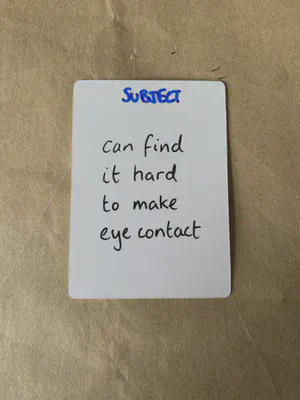 SUBJECT
can find
it hard
to make
eye contact